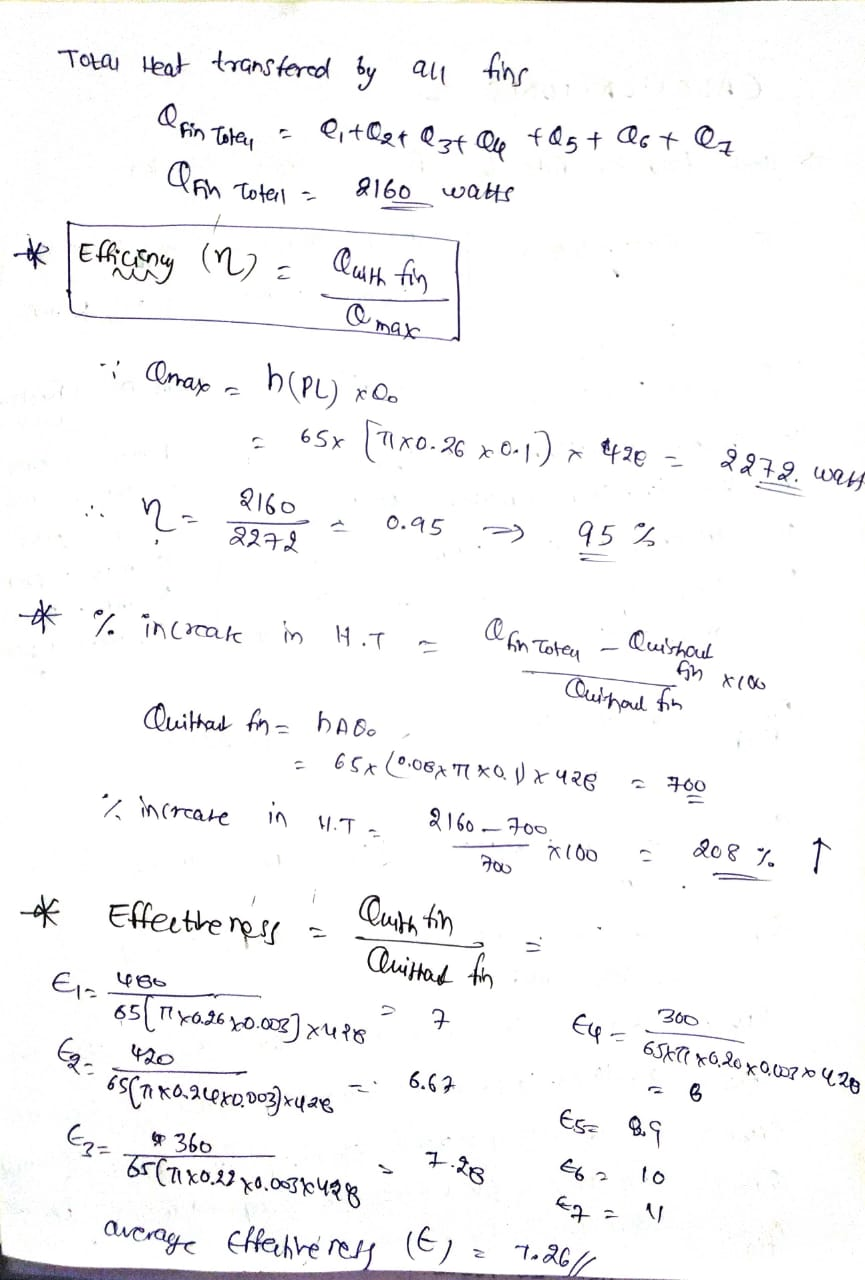 Total Heat transfered by all fins
Q Fin Total = Q1+Q2+ Q3+ Q4 +Q5+ Q6+ Q7
Q Fin Total = 2160 watts
* Efficieny (η) = Q with fin / Q max
∵ Qmax = h(PL) xθo
= 65x [π x0.26 x 0.1] x 428 = 2272. watt
∴ η = 2160 / 2272 = 0.95 ⇒ 95 %
* % increase in H.T = Q fin Total - Qwithout fin / Qwithout fin x100
Qwithout fin = hAθo
= 65x (0.08x π x0.1) x 428 = 700
% increase in H.T = 2160 - 700 / 700 x100 = 208 % ↑
* Effectiveness = Qwith fin / Qwithout fin =
Є1= 480 / 65[π x0.26 x0.003] x428 = 7
Є4 = 300 / 65xπ x0.20x0.003x428 = 8
Є2= 420 / 65(π x0.24x0.003)x428 = 6.67
Є5= 8.9
Є3= 360 / 65(π x0.22 x0.003x428 = 7.28
Є6 = 10
Є7 = 11
average Effectiveness (Є) = 7.26//